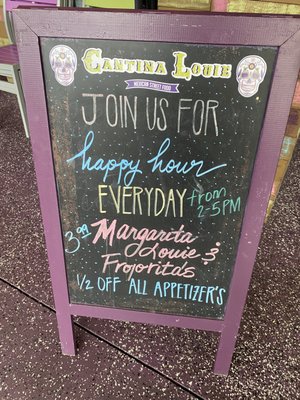 CANTINA LOUIE
MEXICAN STREET FOOD
JOIN US FOR
happy hour
EVERYDAY from 2-5PM
3.99 Margarita
Louie &
Frojoritas
1/2 OFF ALL APPETIZER'S